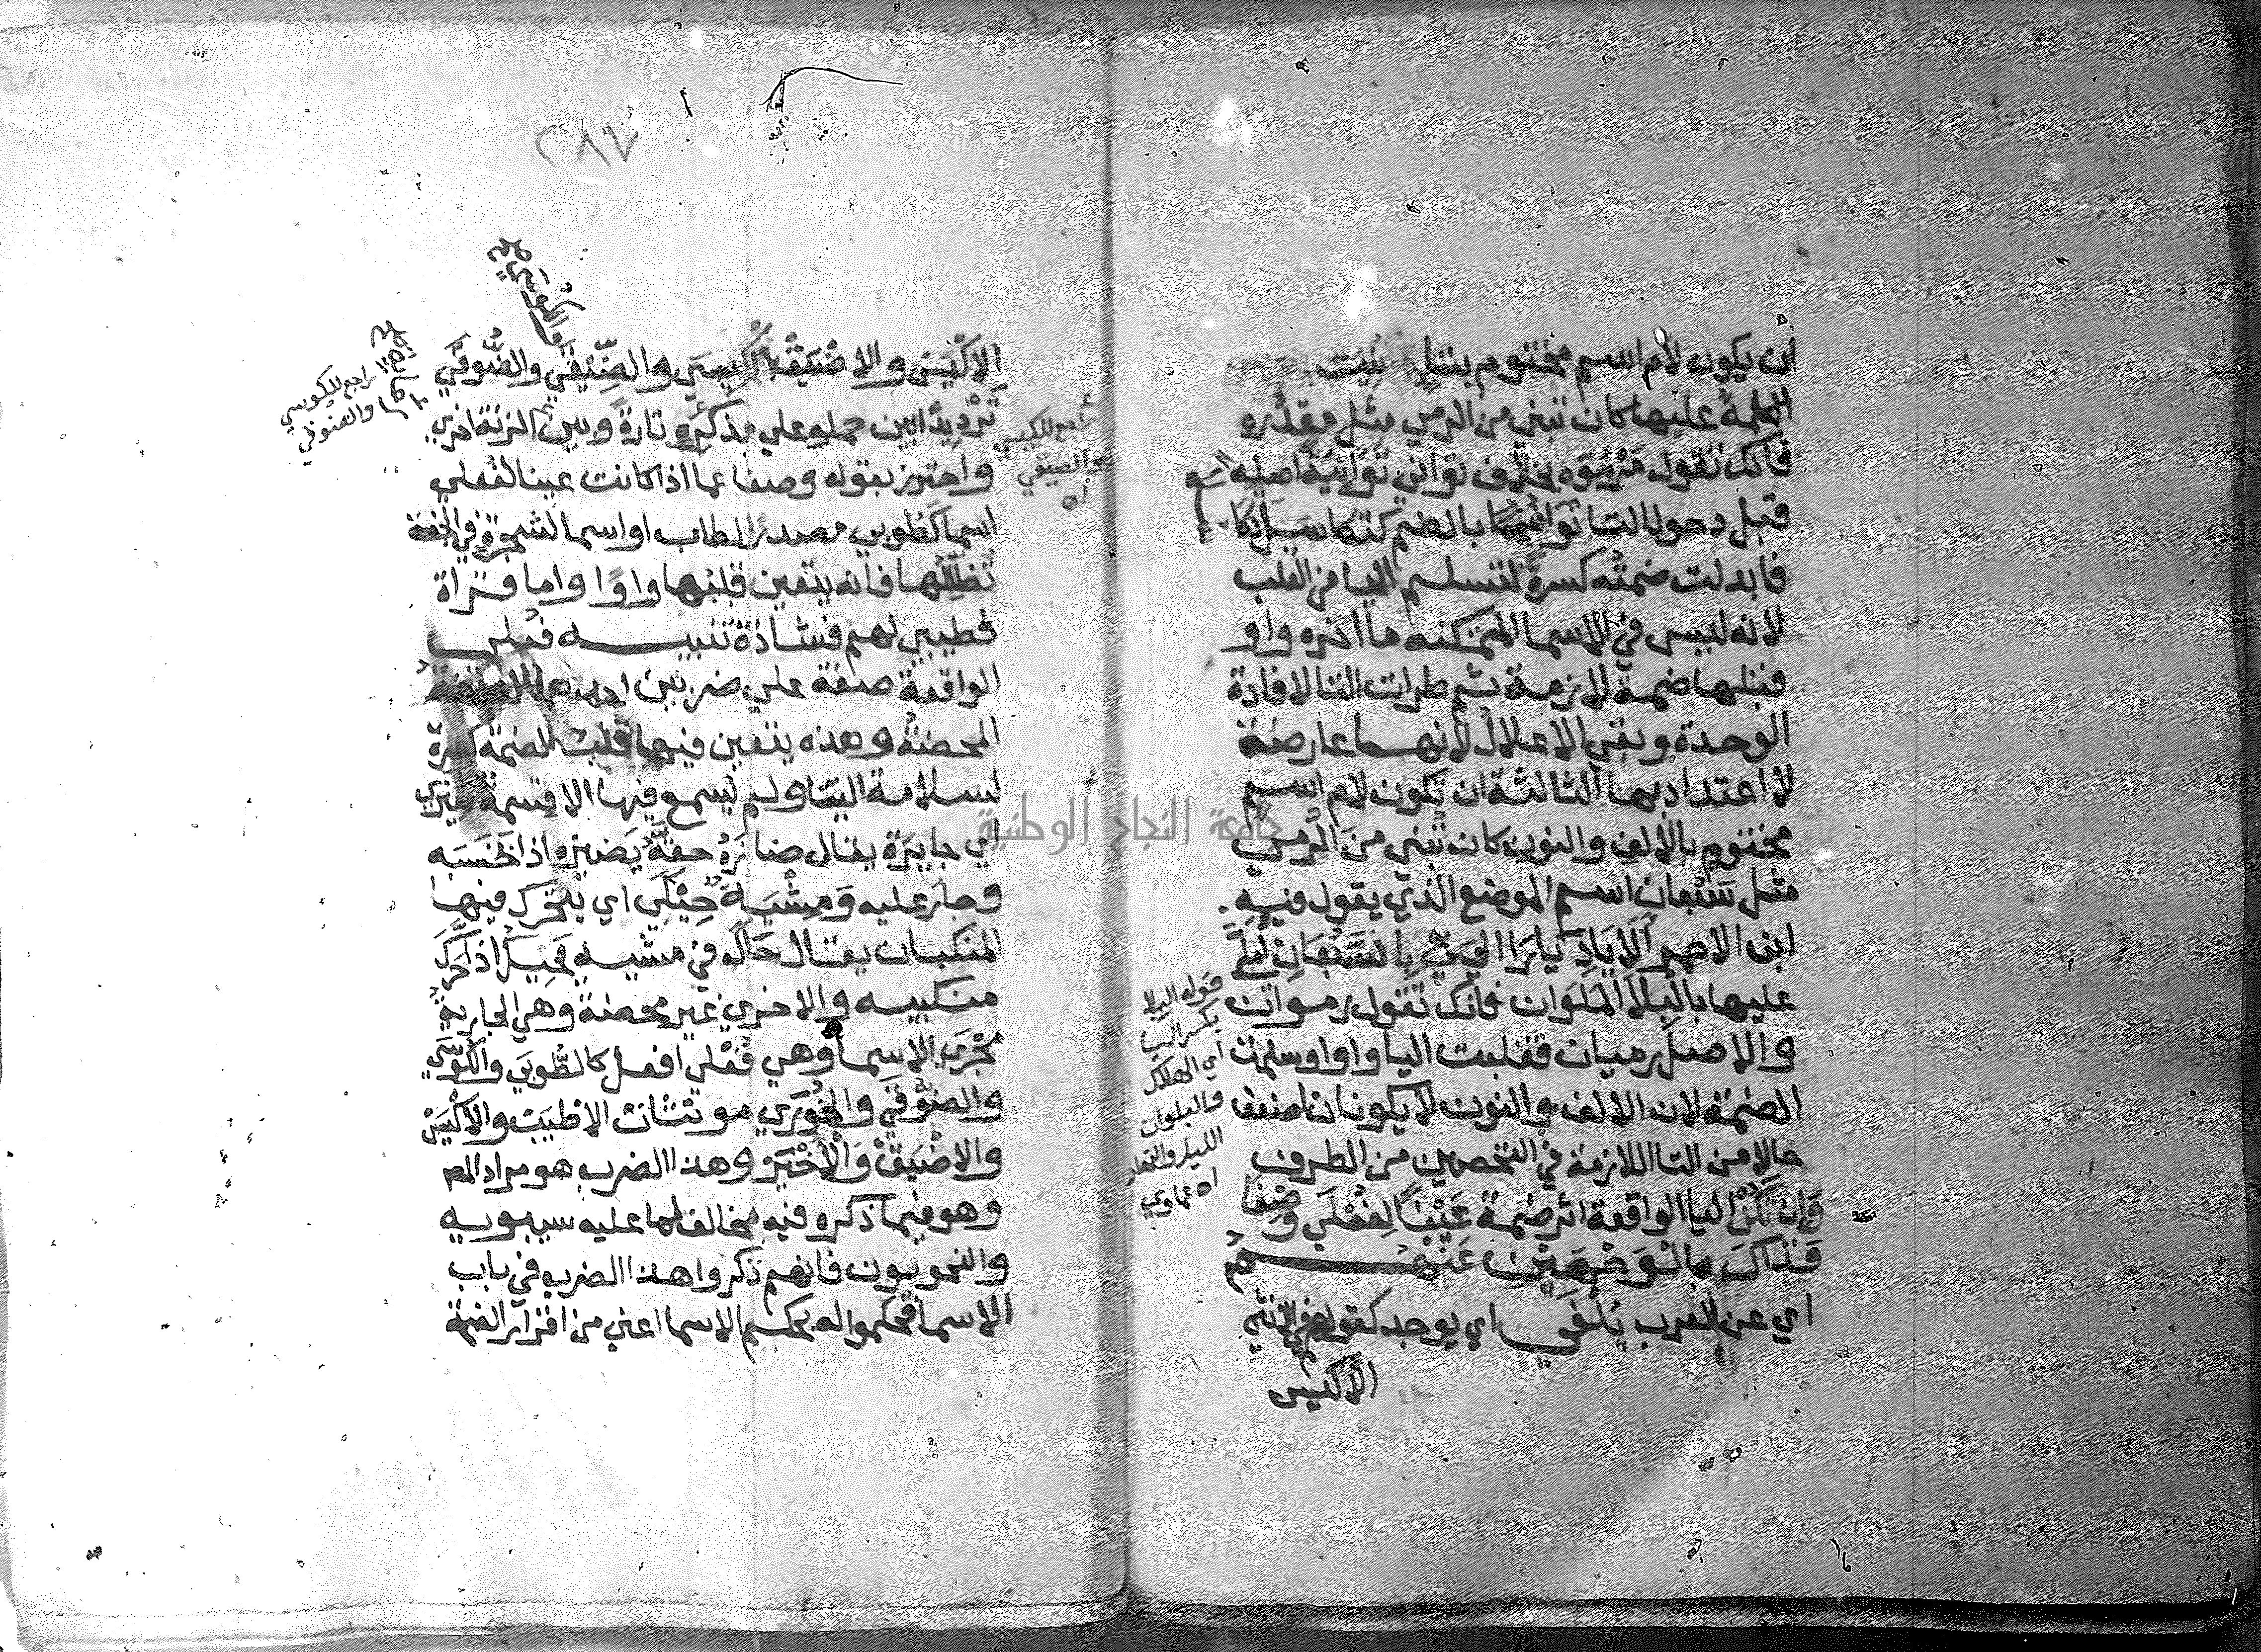 ان يكون لام اسم مختوم بتاءٍ بُنِيَت
الكلمةُ عليها كان تبني من الرمي مثل مقدُره
فانك تقول مَرْمُوَه بخلاف تواني تَوَانِيَةً اصله
قبل دخول التا تَوَانُيًا بالضم كتكاسَلَ تكا
سلا
فابدلت ضمتُه كسرةً لتسلم اليا من القلب
لانه ليس في الاسما المتمكنه ما اخره واو
قبلها ضمة لازمة ثم طرات التا لافادة
الوحدة وبقي الاعلالُ لانهـا عارضة
لا اعتداد بها الثالثة ان تكون لام اسم
مختوم بالالف والنون كان تَبْني من الرمي
مثل سَبُعان اسم الموضع الذي يقول فيه
ابن الاحمر أَلَا يَادِيَارَ الحَيِّ بِالسَّبُعَانِ أَمَلَّ
عليها بالبِلَا المَلَوَان فانك تقول رموان
والاصل رميان فقلبت اليا واوا وسلمت
الضمة لان الالف والنون لا يكونان اضعف
حالا من التا اللازمة في التحصين من الطرف
وَإِن تَكُنْ اليا الواقعة اثر ضمة عَيْنًا لِفُعْلَي وَصْفَا
فَذَاكَ بِالْوَجْهَيْنِ عَنْهُـم
اي عن العرب يُلْفَي اي يوجد كقولهم في انثي
الاكيس
قوله البلا
بكسر البا
اي الهلاك
والملوان
الليل والنهار
اه عماوي
٢٨٧
الاكْيَسَ والاضْيَقْ الْكِيسَي والضِّيقَي والضُّوقَي
تَرْدِيدًا بين حمله علي مذكره تارةً وبين الزنة اخري
واحترز بقوله وصفا عما اذا كانت عينا لفعلي
اسما كَطُوبي مصدرًا لطاب او اسما لشجرة في الجنة
تُظِلُّها فانه يتعين قلبها واوًا واما قراة
طيبي لهم فشاذة تنبيـه فعلي
الواقعة صفة علي ضربين احدهما الصفة
المحضة وهذه يتعين فيها قلب الضمة كسرة
لسلامة اليا ولم يُسمع فيها الا قسمةٌ ضيزي
اي جايرة يقال ضازَهُ حقَّهُ يَضيزه اذا بَخَسَه
وجار عليه وَمِشْيَة حِيْكَي اي يتحرك فيها
المنكبان يقال حَاكَ في مشيه يَحِيكُ اذا حَرَّكَ
منكبيه والاخري غير محضة وهي الجارية
مَجْرَي الاسما وهي فُعْلَي افعل كالطُّوبَي والكُوسَي
والضُّوقَي والخُورَي مونثات الاطْيَبْ والاكْيَسْ
والاضْيَقْ وَالأَخْيَرْ وهذا الضرب هو مراد المص
وهو فيما ذكره فيه مخالف لما عليه سيبويه
والنحويون فانهم ذكروا هذا الضرب في باب
الاسما فحكموا له بحكم الاسما اعني من اقرار الضمة
راجع للكيسي
والضيقي
اه
راجع للكوسي
والضوقي